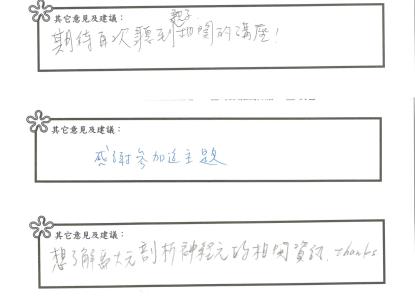 其它意見及建議：
親子
期待再次聽到相關的講座！
其它意見及建議：
感謝參加這主題
其它意見及建議：
想了解 大元剖析神程元的相關資訊. thanks